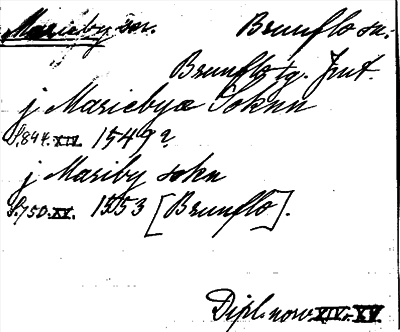 Marieby sn. Brunflo sn.
Brunflo tg. Jmt.
j Mariebyæ Soknn
S. 844. XIV. 1549?
j Mariby sokn
S. 750. XV. 1553 [Brunflo].
Dipl. norv. XIV. XV.